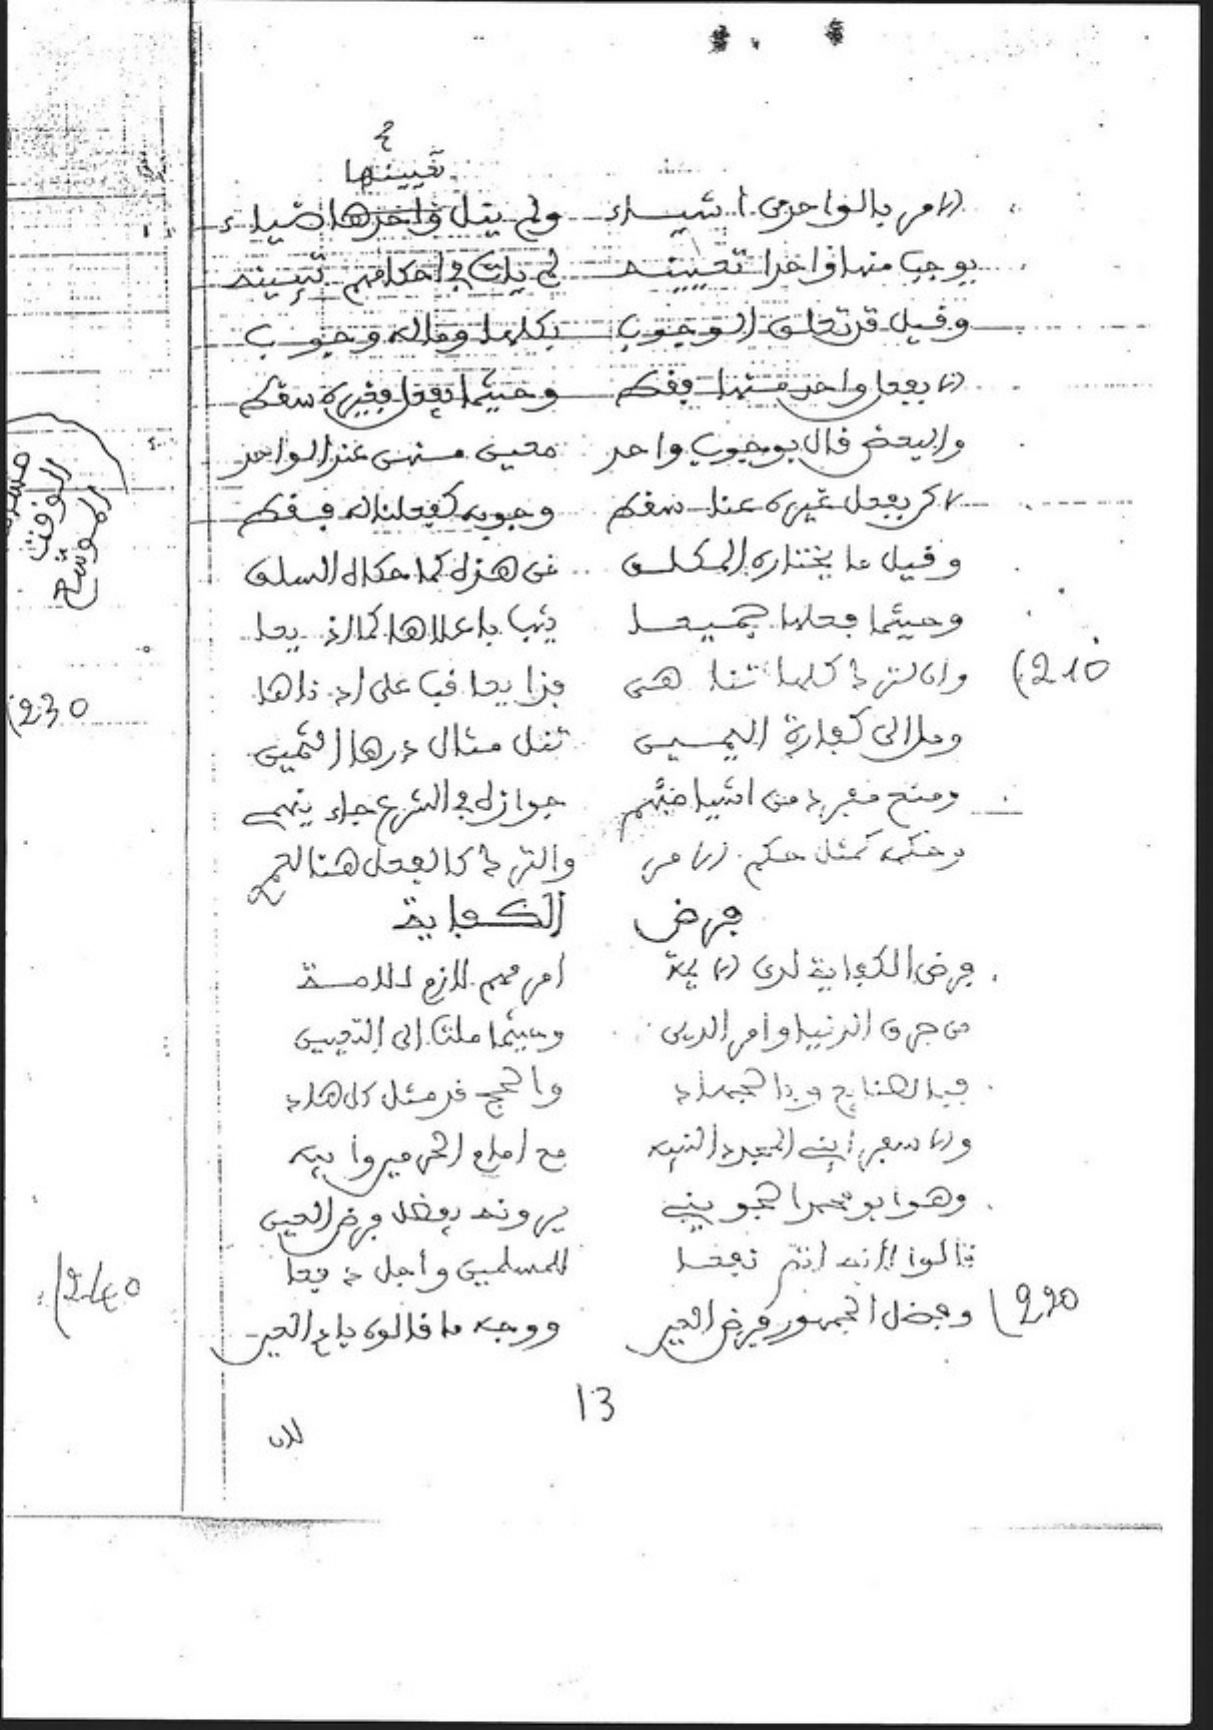 تعيينها
الامر بالواحد من اشياء ولم ينل واحدها ضياء
يوجب منها واحدا تعيينه لم يك في احكامهم تبيينه
وقيل قد تعلق الوجوب بكلها وماله وجوب
الا بفعل واحد منها فقط وحيثما تفعل فغيره سقط
والبعض قال بوجوب واحد معين منهن عند الواحد
لاكن بفعل غيره عنا سقط وجوبه كفعلنا له فقط
وقيل ما يختاره المكلف من هذه كما حكاه السلف
وحيثما فعلها جميعا يثب باعلاها كما الذ يعا
210) وان لترك كلها تناهى فذا يعاقب على ادناها
وملا الى كفارة اليمين تنل مثال درها الثمين
ومنع مفرد من اشيا مبهم جوازه في الشرع جاء ينهم
وحكمه كمثل حكم الامر والترك كالفعل هنا
فرض الكفاية
فرض الكفاية لدى الايمة امر مهم لازم للامة
من حرف الدنيا وامر الدين وحيثما ملت الى التعيين
فبالصنايع وبالجهاد والحج قد مثل كل هاد
والاسفرايني المجرد النبيه مع امام الحرمين وابيه
وهو ابو محمد الجويني يرونه يفضل فرض العين
قالوا لانه اتم نفعا للمسلمين واجل دفعا
220) وفضل الجمهور فرض العين ووجه ما قالوه باد العين
13
لان
الوقت
الموسع
(230
(240